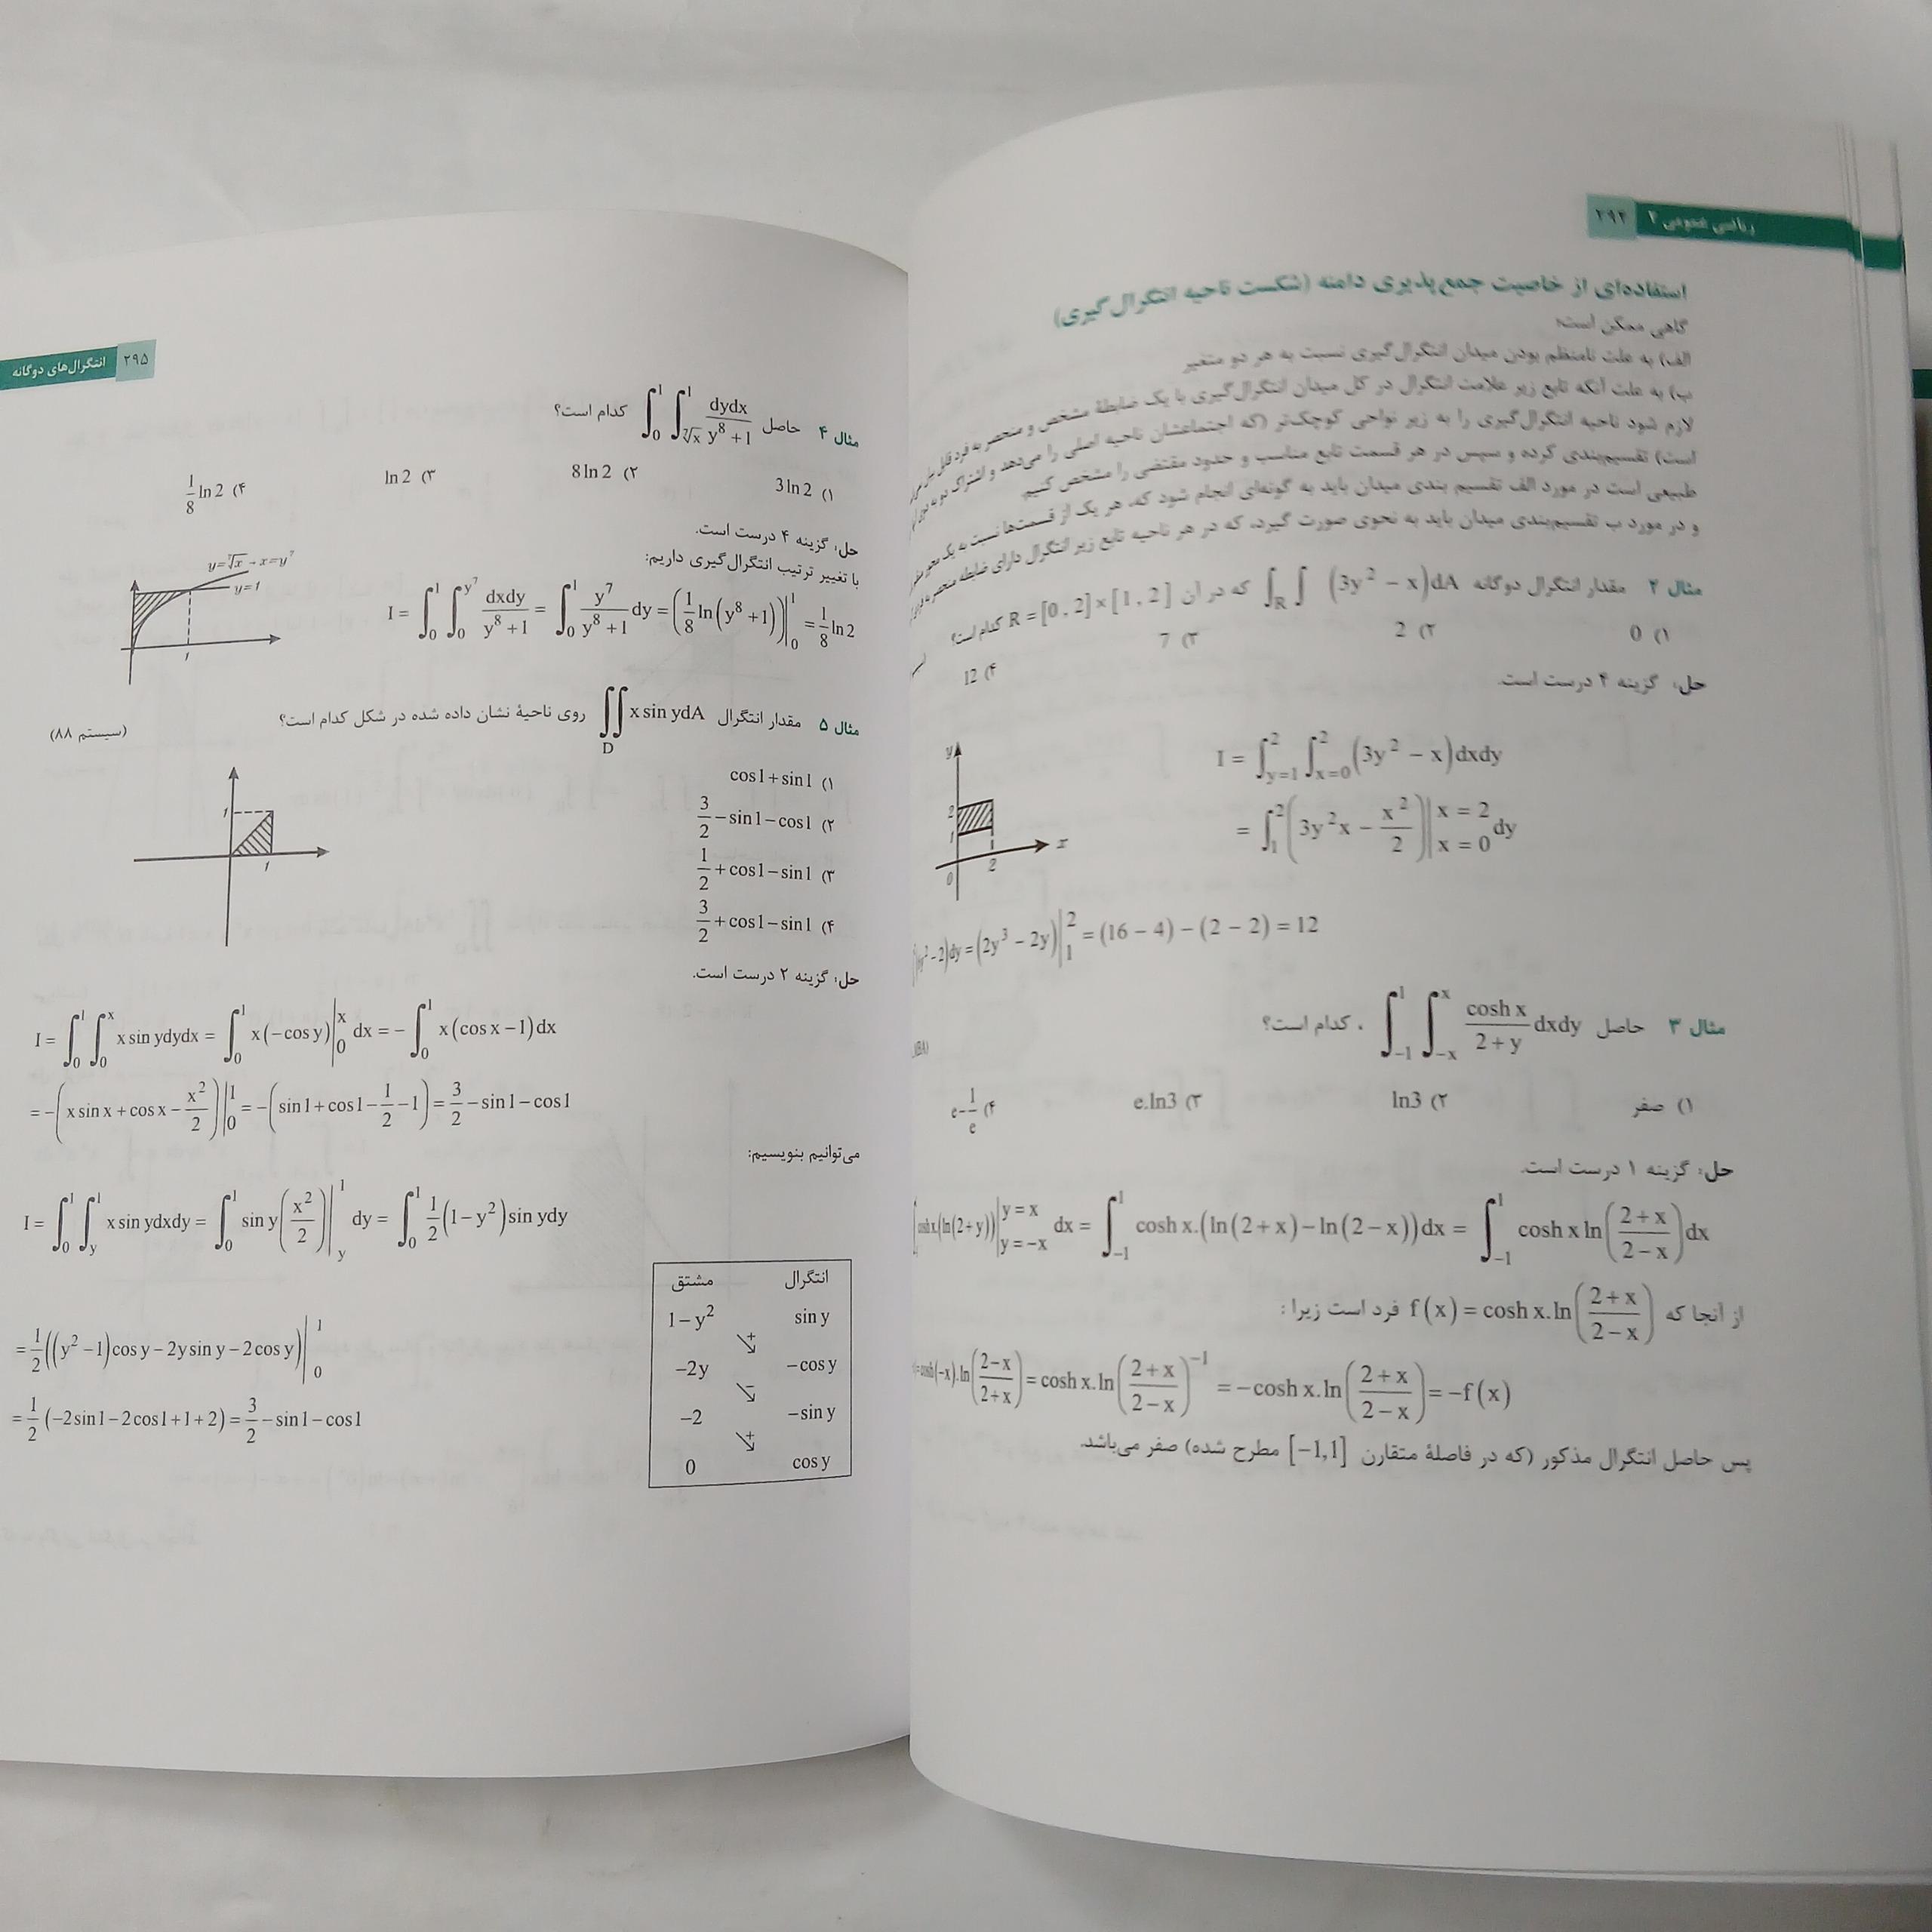 ریاضی عمومی ۲ ۲۹۴
استفاده‌ای از خاصیت جمع‌پذیری دامنه (شکست ناحیه انتگرال‌گیری)
گاهی ممکن است:
الف) به علت نامنظم بودن میدان انتگرال‌گیری نسبت به هر دو متغیر
ب) به علت آنکه تابع زیر علامت انتگرال در کل میدان انتگرال‌گیری با یک ضابطهٔ مشخص و منحصر به فرد قابل بیان
لازم شود ناحیه انتگرال‌گیری را به زیر نواحی کوچک‌تر (که اجتماعشان ناحیه اصلی را می‌دهد و اشتراک دو به دوی
است) تقسیم‌بندی کرده و سپس در هر قسمت تابع مناسب و حدود مقتضی را مشخص کنیم.
طبیعی است در مورد الف تقسیم بندی میدان باید به گونه‌ای انجام شود که، هر یک از قسمت‌ها نسبت به یک محور
و در مورد ب تقسیم‌بندی میدان باید به نحوی صورت گیرد، که در هر ناحیه تابع زیر انتگرال دارای ضابطه منحصر به فرد
مثال ۲ مقدار انتگرال دوگانه ∫_R ∫ (3y² − x)dA که در آن R = [0 , 2]×[1 , 2] کدام است؟
۱) 0 ۲) 2 ۳) 7 ۴) 12
حل: گزینه ۴ درست است.
I = ∫_{y=1}^{2} ∫_{x=0}^{2} (3y² − x)dxdy
= ∫_1^2 (3y²x − x²/2)|_{x = 0}^{x = 2} dy
y² − 2)dy = (2y³ − 2y)|_1^2 = (16 − 4) − (2 − 2) = 12
y 2 1 0 2 x
مثال ۳ حاصل ∫_{−1}^{1} ∫_{−x}^{x} cosh x/(2 + y) dxdy ، کدام است؟
۱) صفر ۲) ln3 ۳) e.ln3 ۴) e − 1/e
حل: گزینه ۱ درست است.
cosh x.(ln(2 + y))|_{y = −x}^{y = x} dx = ∫_{−1}^{1} cosh x.(ln(2 + x) − ln(2 − x))dx = ∫_{−1}^{1} cosh x ln((2 + x)/(2 − x))dx
از آنجا که f(x) = cosh x.ln((2 + x)/(2 − x)) فرد است زیرا :
= cosh(−x).ln((2 − x)/(2 + x)) = cosh x.ln((2 + x)/(2 − x))^{−1} = −cosh x.ln((2 + x)/(2 − x)) = −f(x)
پس حاصل انتگرال مذکور (که در فاصلهٔ متقارن [−1,1] مطرح شده) صفر می‌باشد.
انتگرال‌های دوگانه ۲۹۵
مثال ۴ حاصل ∫_0^1 ∫_{⁷√x}^1 dydx/(y⁸ + 1) کدام است؟
۱) 3 ln 2 ۲) 8 ln 2 ۳) ln 2 ۴) 1/8 ln 2
حل: گزینه ۴ درست است.
با تغییر ترتیب انتگرال‌گیری داریم:
I = ∫_0^1 ∫_0^{y⁷} dxdy/(y⁸ + 1) = ∫_0^1 y⁷/(y⁸ + 1) dy = (1/8 ln(y⁸ + 1))|_0^1 = 1/8 ln 2
y = ⁷√x → x = y⁷
y = 1
1
مثال ۵ مقدار انتگرال ∬_D x sin ydA روی ناحیهٔ نشان داده شده در شکل کدام است؟ (سیستم ۸۸)
۱) cos1 + sin1
۲) 3/2 − sin1 − cos1
۳) 1/2 + cos1 − sin1
۴) 3/2 + cos1 − sin1
1 1
حل: گزینه ۲ درست است.
I = ∫_0^1 ∫_0^x x sin ydydx = ∫_0^1 x(−cos y)|_0^x dx = −∫_0^1 x(cos x − 1)dx
= −(x sin x + cos x − x²/2)|_0^1 = −(sin1 + cos1 − 1/2 − 1) = 3/2 − sin1 − cos1
می‌توانیم بنویسیم:
I = ∫_0^1 ∫_y^1 x sin ydxdy = ∫_0^1 sin y(x²/2)|_y^1 dy = ∫_0^1 1/2(1 − y²)sin ydy
= 1/2((y² − 1)cos y − 2y sin y − 2cos y)|_0^1
= 1/2(−2sin1 − 2cos1 + 1 + 2) = 3/2 − sin1 − cos1
مشتق انتگرال
1 − y² sin y
+
−2y −cos y
−
−2 −sin y
+
0 cos y